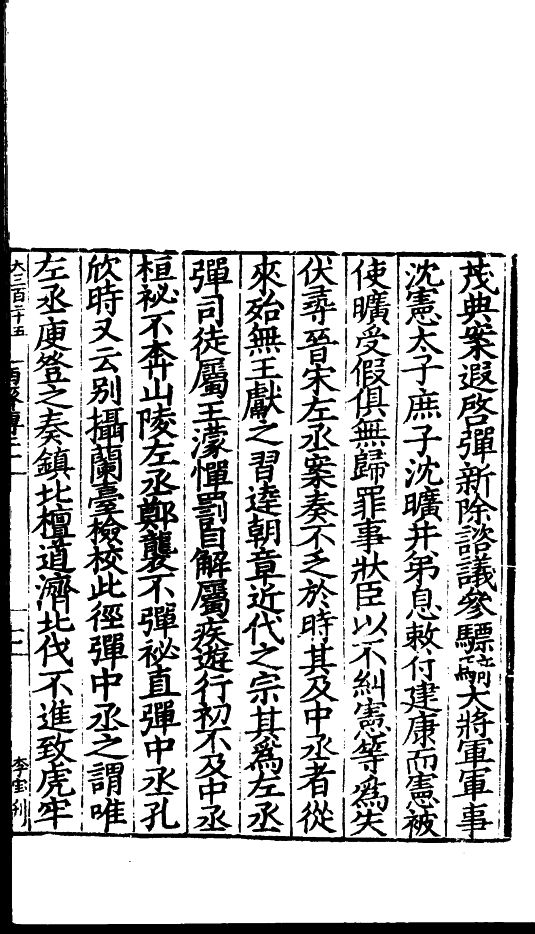 茂典案遐啓彈新除諮議參驃騎大將軍軍事
沈憲太子庶子沈曠并弟息敕付建康而憲被
使曠受假俱無歸罪事狀臣以不糾憲等爲失
伏尋晉宋左丞案奏不乏於時其及中丞者從
來殆無王獻之習達朝章近代之宗其爲左丞
彈司徒屬王濛憚罰自解屬疾遊行初不及中丞
桓祕不奔山陵左丞鄭襲不彈祕直彈中丞孔
欣時又云别攝蘭臺檢校此徑彈中丞之謂唯
左丞庾登之奏鎮北檀道濟北伐不進致虎牢
大三百二十五
李宝刊